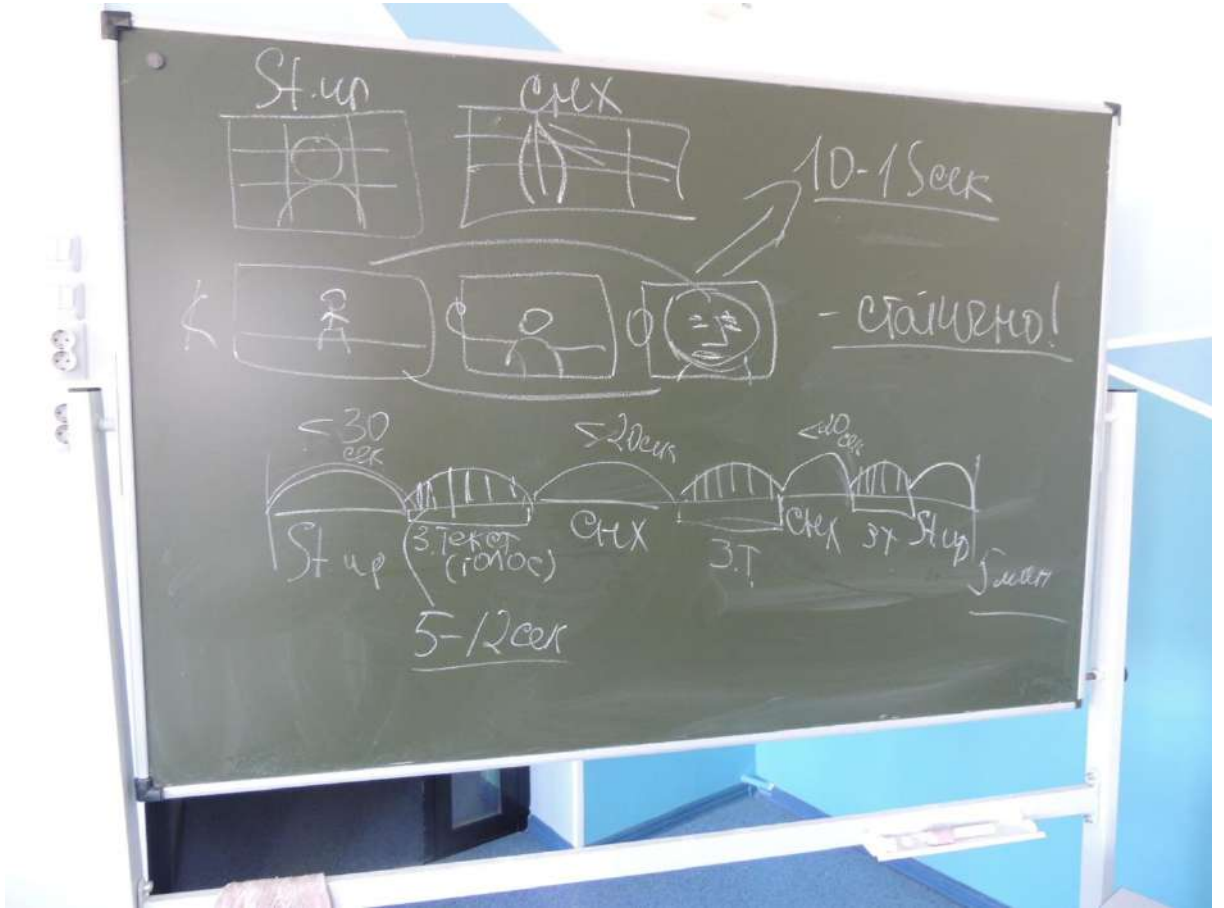 St. up СНХ
10-15 сек
- статично!
<30 сек
≤20 сек
<20 сек
St. up
З.Текст (голос)
СНХ
З.Т
СНХ
ЗТ
St. up
5 мин
5-12 сек